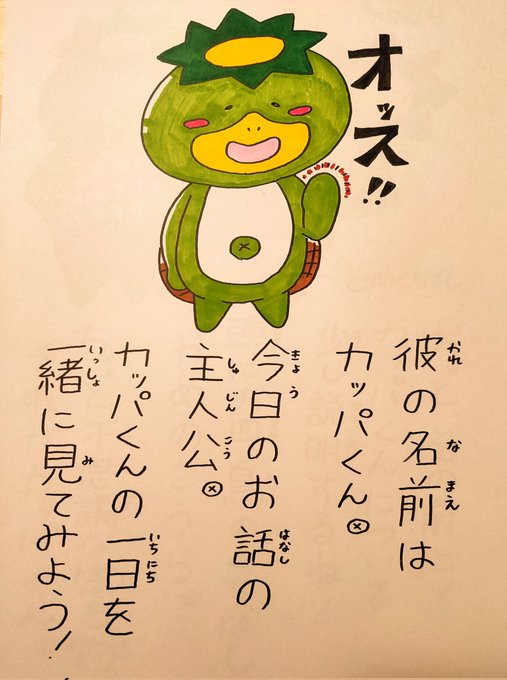 オッス!!
彼の名前は
かれ なまえ
カッパくん。
今日のお話の
きょう はなし
主人公。
しゅじんこう
カッパくんの一日を
いちにち
一緒に見てみよう!
いっしょ み